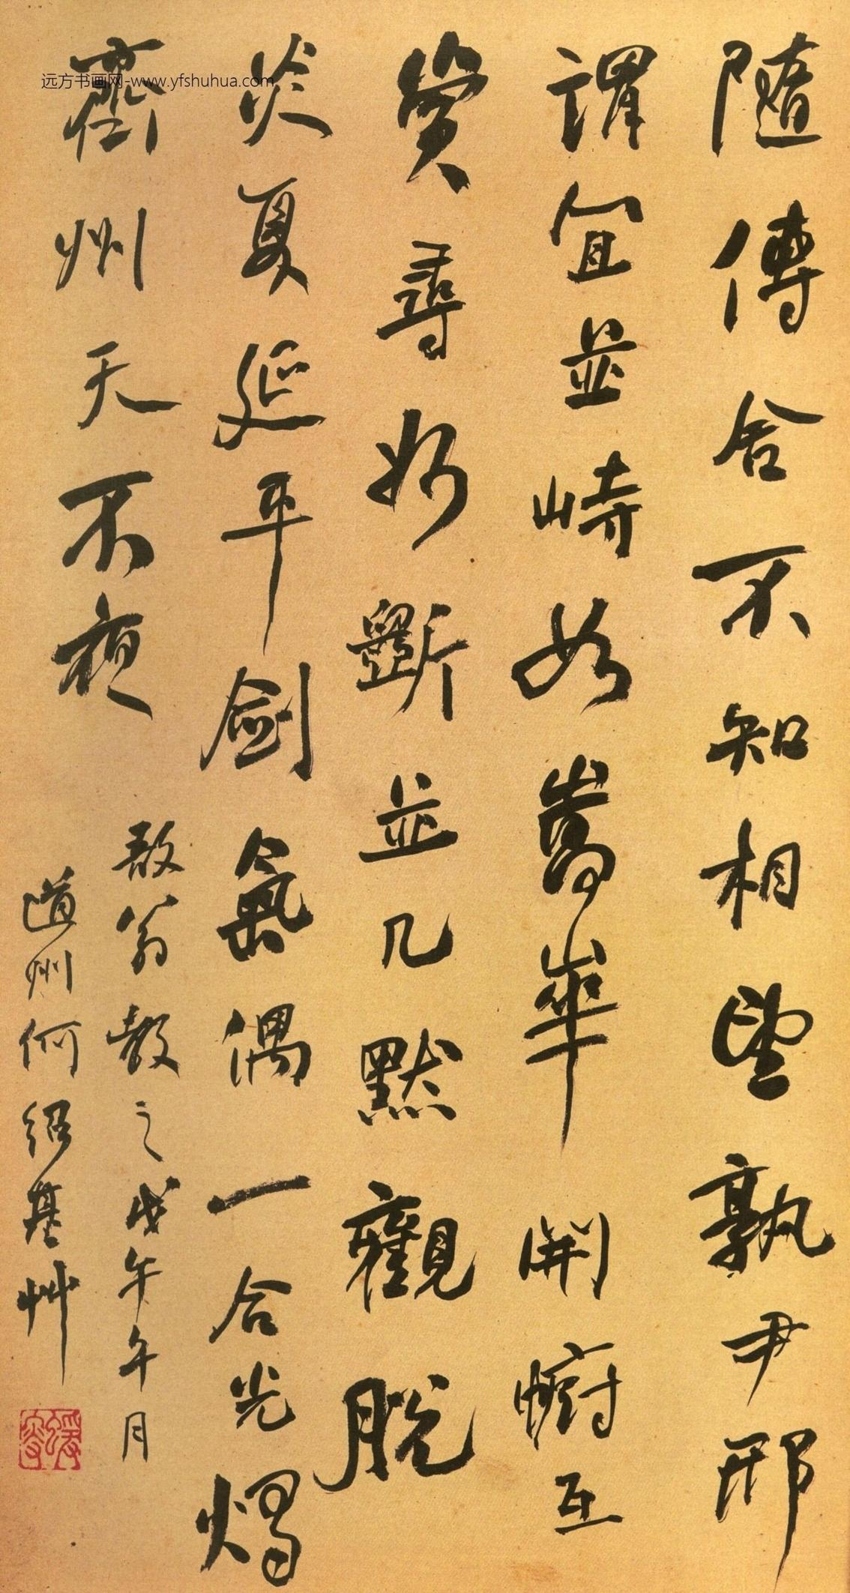 隨傳舍不知相望孰尹邢
謂宜並峙如嵩華開幮互
賞尋如斷並几默觀脫
炎夏延平劍氣偶一合光燭
齊州天不夜
敔翁教之戊午午月
道州何紹基艸
远方书画网-www.yfshuhua.com